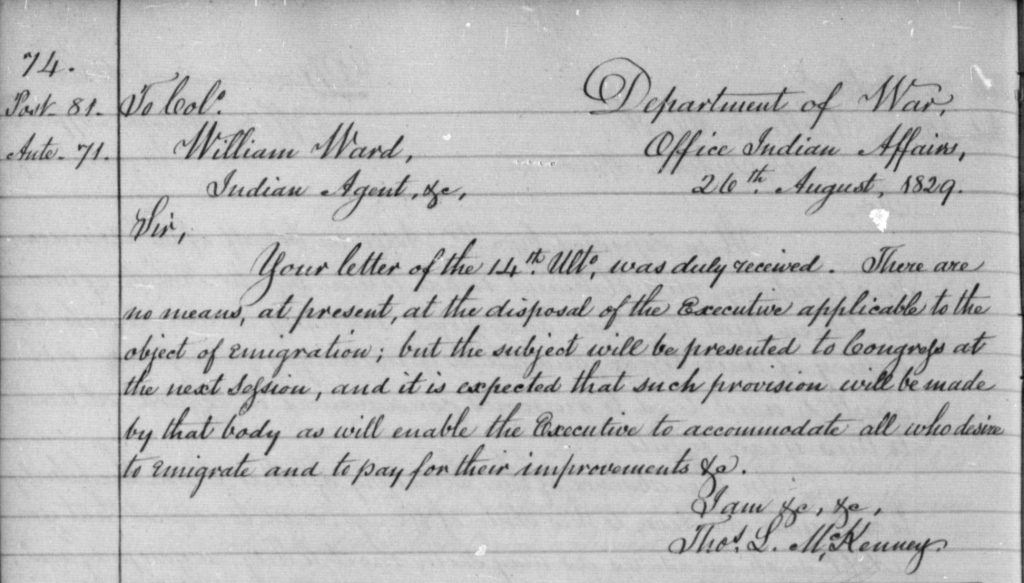 74.
Post. 81. To Col.º Department of War,
Ante. 71. William Ward, Office Indian Affairs,
Indian Agent, &c, 26th. August, 1829.
Sir,
Your letter of the 14th. Ulto. was duly received. There are
no means, at present, at the disposal of the Executive applicable to the
object of emigration; but the subject will be presented to Congress at
the next Session, and it is expected that such provision will be made
by that body as will enable the Executive to accommodate all who desire
to emigrate and to pay for their improvements &c.
I am &c, &c,
Thos. L. McKenney.